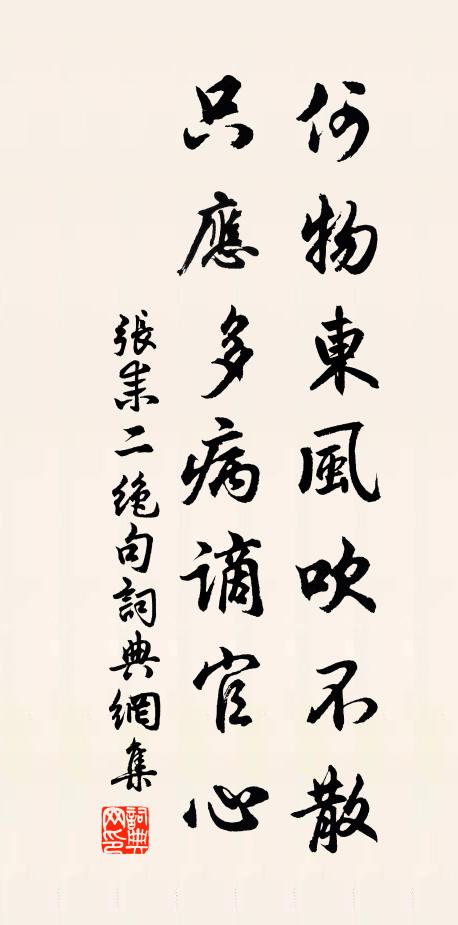 何物東風吹不散
只應多病謫官心
張耒二絶句詞典網集
詞典網印